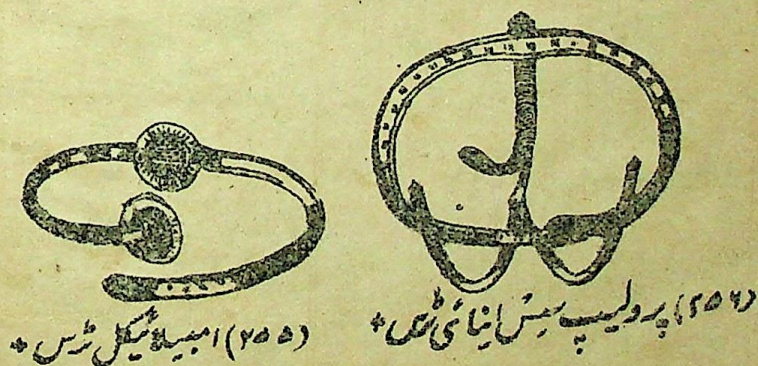 (۲۵۶) پرولیپ سیس اینائی ٹرس *
(۲۵۵) امبیلائیکل ٹرس *